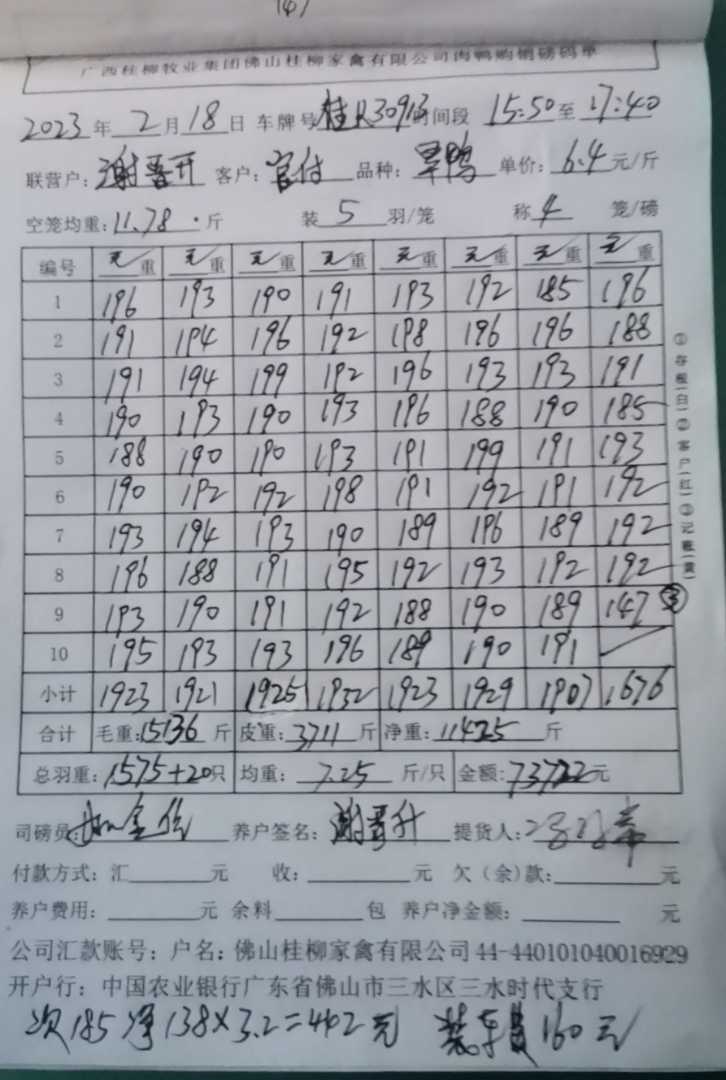 147
广西桂柳牧业集团佛山桂柳家禽有限公司肉鸭购销磅码单
2023年2月18日 车牌号桂R30913时间段 15:50至17:40
联营户:谢晋升 客户:官付 品种:旱鸭 单价:6.4元/斤
空笼均重:11.78斤 装5羽/笼 称4笼/磅
编号 毛重 毛重 毛重 毛重 毛重 毛重 毛重 毛重
1 196 193 190 191 193 192 185 196
2 191 194 196 192 198 196 196 188
3 191 194 199 192 196 193 193 191
4 190 193 190 193 196 188 190 185
5 188 190 190 193 191 199 191 193
6 190 192 192 198 191 192 191 192
7 193 194 193 190 189 196 189 192
8 196 188 191 195 192 193 192 192
9 193 190 191 192 188 190 189 147 ③
10 195 193 193 196 189 190 191
小计 1923 1921 1925 1932 1923 1929 1907 1676
合计 毛重:15136斤 皮重:3711斤 净重:11425斤
总羽重:1575+20只 均重:7.25斤/只 金额:73722元
司磅员: 养户签名:谢晋升 提货人:
付款方式:汇 元 收: 元 欠(余)款: 元
养户费用: 元 余料 包 养户净金额: 元
公司汇款账号:户名:佛山桂柳家禽有限公司44-440101040016929
开户行:中国农业银行广东省佛山市三水区三水时代支行
次185 净138×3.2=442元 装车费160元
①存根(白)②客户(红)③记账(黄)